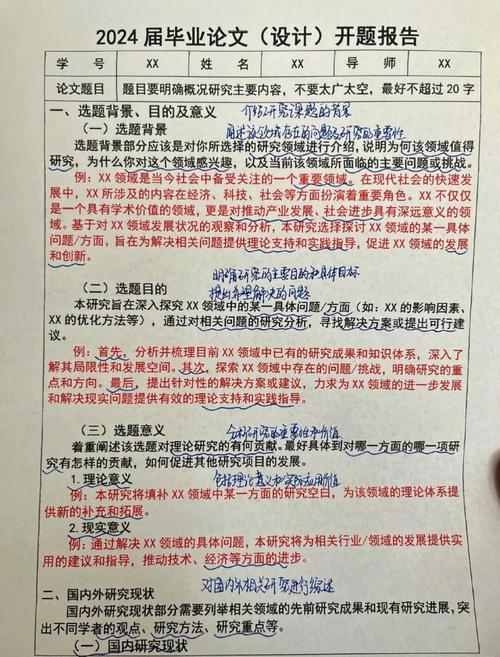 2024 届毕业论文（设计）开题报告
学 号 XX 姓 名 XX 导 师 XX
论文题目 题目要明确概况研究主要内容，不要太广太空，最好不超过 20 字
一、选题背景、目的及意义 介绍研究课题的背景
（一）选题背景 阐述该领域存在的问题及研究的重要性
选题背景部分应该是对你所选择的研究领域进行介绍，说明为何该领域值得
研究，为什么你对这个领域感兴趣，以及当前该领域所面临的主要问题或挑战。
例：XX 领域是当今社会中备受关注的一个重要领域。在现代社会的快速发
展中，XX 所涉及的内容在经济、科技、社会等方面扮演着重要角色。XX 不仅仅
是一个具有学术价值的领域，更是对推动产业发展、社会进步具有深远意义的领
域。基于对 XX 领域发展状况的观察和分析，本研究选择探讨 XX 领域的某一具体
问题/方面，旨在为解决相关问题提供理论支持和实践指导，促进 XX 领域的发展
和创新。
明确研究的主要目的和具体目标
（二）选题目的 提出希望解决的问题
本研究旨在深入探究 XX 领域中的某一具体问题/方面（如：XX 的影响因素、
XX 的优化方法等），通过对相关问题的研究分析，寻找解决方案或提出可行建
议。
例：首先，分析并梳理目前 XX 领域中已有的研究成果和知识体系，深入了
解其局限性和发展空间。其次，探索 XX 领域中存在的问题/挑战，明确研究的重
点和方向。最后，提出针对性的解决方案或建议，力求为 XX 领域的进一步发展
和解决现实问题提供有效的理论支持和实践指导。
（三）选题意义 研究的重要性和价值
着重阐述该选题对理论研究的有何贡献。最好具体到对哪一方面的哪一项研
究有怎样的贡献，如何促进其他研究项目的发展。
1. 理论意义 包括理论意义和实际应用价值
例：本研究将填补 XX 领域中某一方面的研究空白，为该领域的理论体系提
供新的补充和拓展。
2. 现实意义
例：通过解决 XX 领域的具体问题，本研究将为相关行业/领域的发展提供实
用的建议和指导，推动技术、经济等方面的进步。
二、国内外研究现状 对国内外相关研究进行综述
国内外研究现状部分需要列举相关领域的先前研究成果和现有研究进展，突
出不同学者的观点、研究方法、研究重点等。
（一）国内研究现状